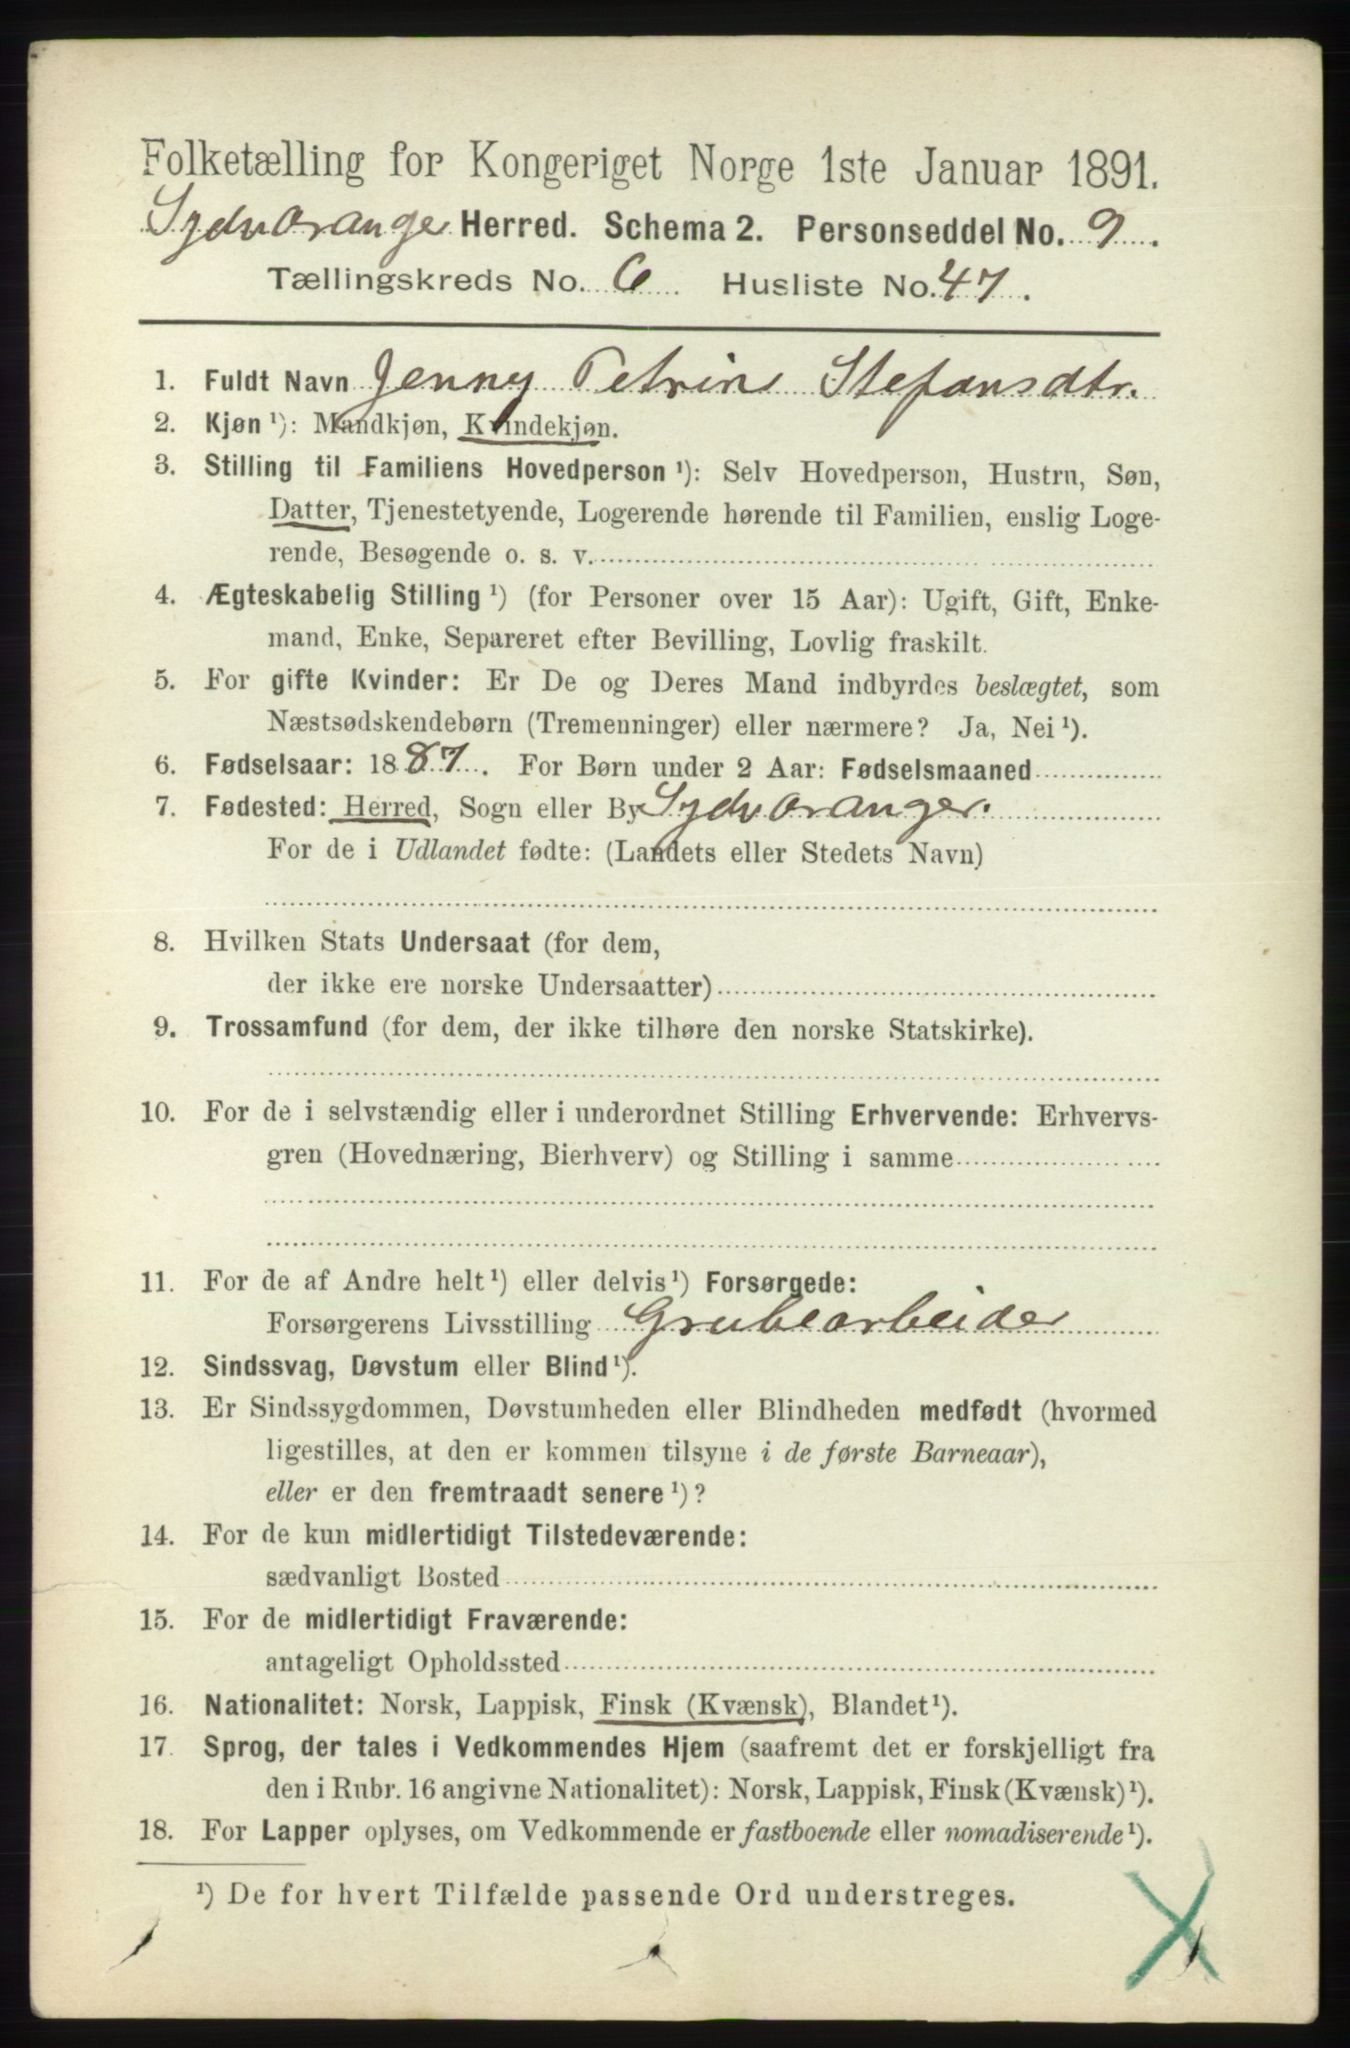 Folketælling for Kongeriget Norge 1ste Januar 1891.
Sydvaranger Herred. Schema 2. Personseddel No. 9.
Tællingskreds No. 6 Husliste No. 47.
1. Fuldt Navn Jenny Petrine Stefansdtr.
2. Kjøn ¹): Mandkjøn, Kvindekjøn.
3. Stilling til Familiens Hovedperson ¹): Selv Hovedperson, Hustru, Søn,
Datter, Tjenestetyende, Logerende hørende til Familien, enslig Loge-
rende, Besøgende o. s. v.
4. Ægteskabelig Stilling ¹) (for Personer over 15 Aar): Ugift, Gift, Enke-
mand, Enke, Separeret efter Bevilling, Lovlig fraskilt.
5. For gifte Kvinder: Er De og Deres Mand indbyrdes beslægtet, som
Næstsødskendebørn (Tremenninger) eller nærmere? Ja, Nei ¹).
6. Fødselsaar: 1887. For Børn under 2 Aar: Fødselsmaaned
7. Fødested: Herred, Sogn eller By Sydvaranger.
For de i Udlandet fødte: (Landets eller Stedets Navn)
8. Hvilken Stats Undersaat (for dem,
der ikke ere norske Undersaatter)
9. Trossamfund (for dem, der ikke tilhøre den norske Statskirke).
10. For de i selvstændig eller i underordnet Stilling Erhvervende: Erhvervs-
gren (Hovednæring, Bierhverv) og Stilling i samme
11. For de af Andre helt ¹) eller delvis ¹) Forsørgede:
Forsørgerens Livsstilling Grubearbeider
12. Sindssvag, Døvstum eller Blind ¹).
13. Er Sindssygdommen, Døvstumheden eller Blindheden medfødt (hvormed
ligestilles, at den er kommen tilsyne i de første Barneaar),
eller er den fremtraadt senere ¹)?
14. For de kun midlertidigt Tilstedeværende:
sædvanligt Bosted
15. For de midlertidigt Fraværende:
antageligt Opholdssted
16. Nationalitet: Norsk, Lappisk, Finsk (Kvænsk), Blandet ¹).
17. Sprog, der tales i Vedkommendes Hjem (saafremt det er forskjelligt fra
den i Rubr. 16 angivne Nationalitet): Norsk, Lappisk, Finsk (Kvænsk) ¹).
18. For Lapper oplyses, om Vedkommende er fastboende eller nomadiserende ¹).
¹) De for hvert Tilfælde passende Ord understreges.